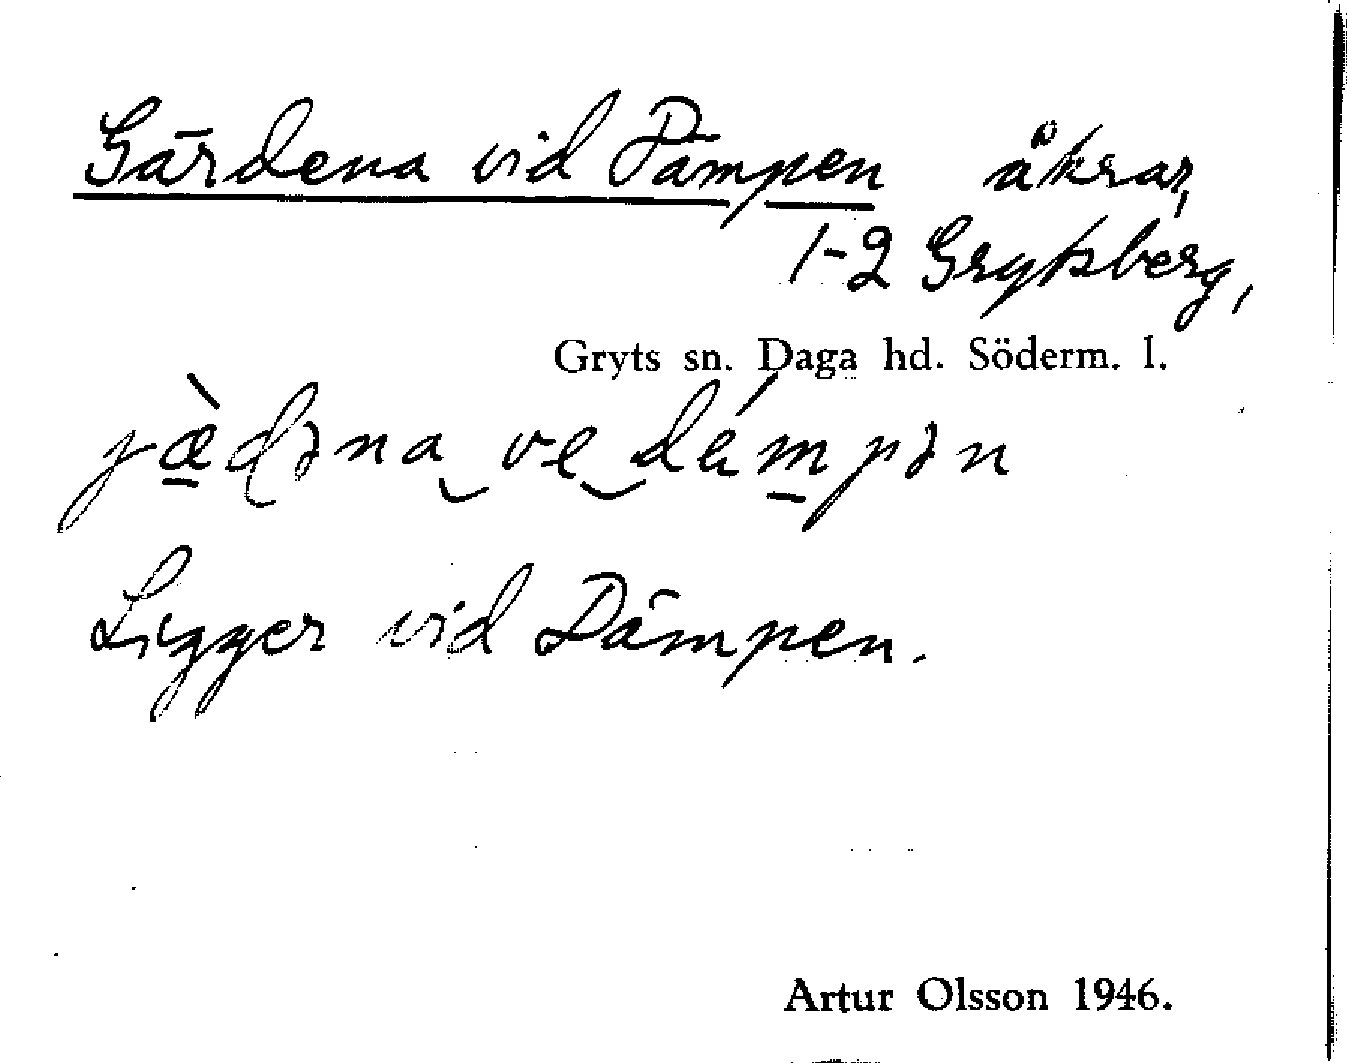 Gärdena vid Dämpen åkrar,
1-2 Grytsberg,
Gryts sn. Daga hd. Söderm. l.
jæ̀dəna ve dǽmpən
Ligger vid Dämpen.
Artur Olsson 1946.